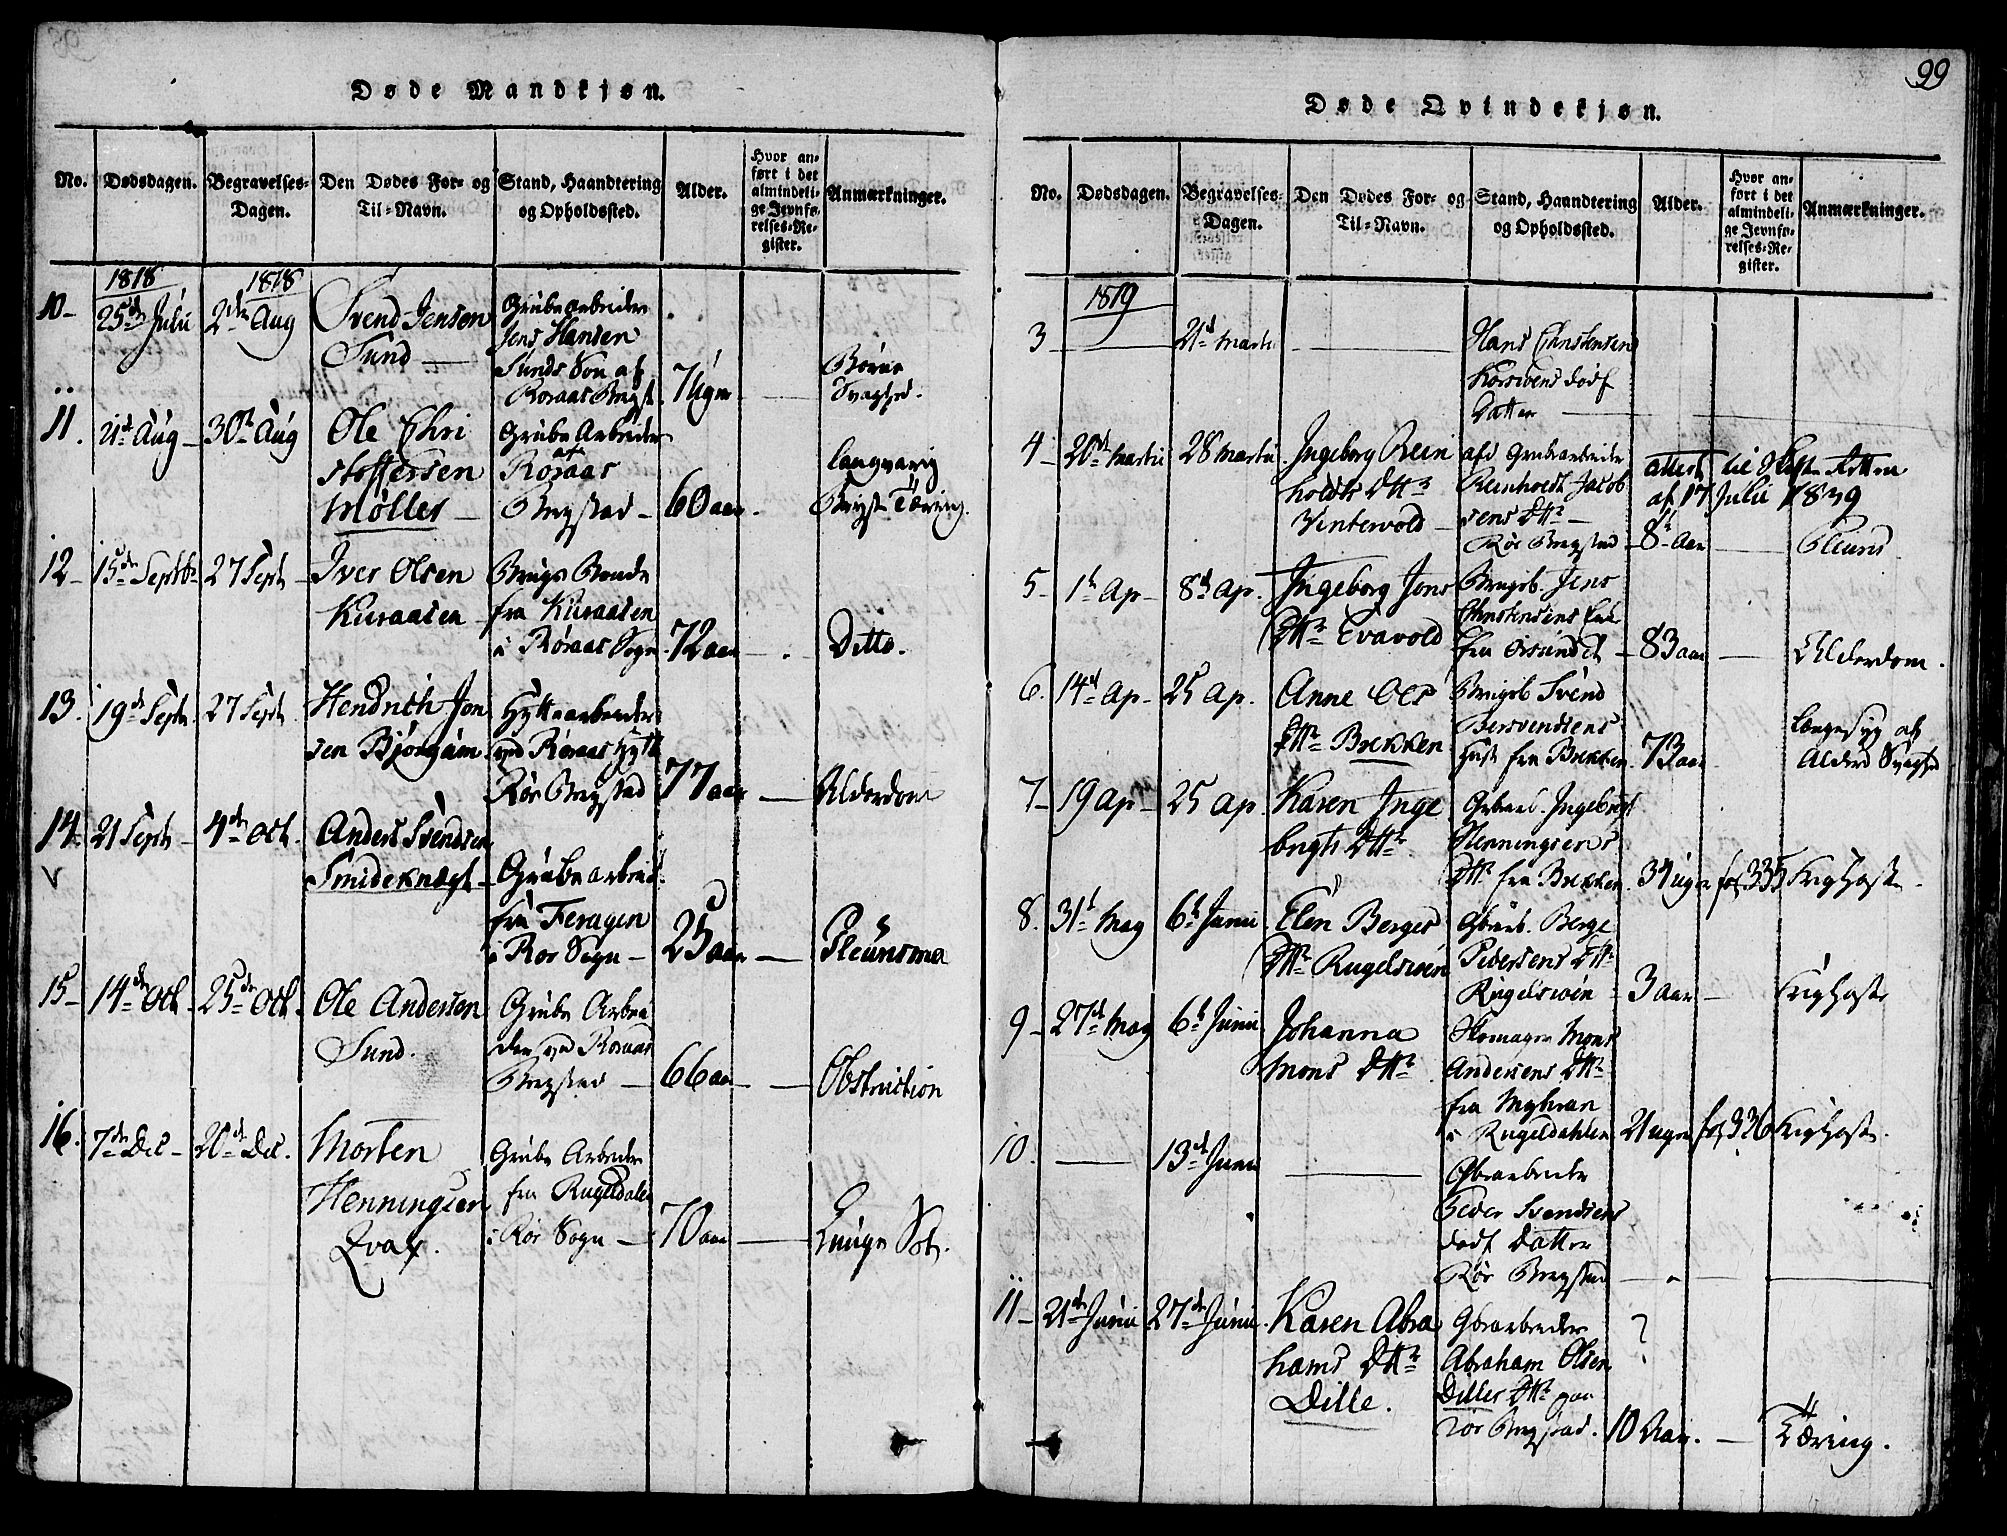 Døde Mandkjøn.
No.
Dødsdagen.
Begravelses-
Dagen.
Den Dødes For- og
Til-Navn.
Stand, Haandtering
og Opholdssted.
Alder.
Hvor an-
ført i det
almindeli-
ge Jevnfø-
relses-Re-
gister.
Anmærkninger.
1818
1818
10-
25de Julii
2den Aug
Svend Jensen
Sund
Grubearbeider
Jens Hansen
Sunds Søn af
Røraas Bergst.
7 Ugr
Børne
Svaghed.
11.
21d Aug
30th Aug
Ole Chri
stoffersen
Møller
Grube Arbeider
af
Røraas
Bergstad
60 aar.
Langvarig
Bryst Tæring.
12
15de Septbr
27 Sept
Iver Olsen
Kuraasen
Brugs Bonde
fra Kuraasen
i Røraas Sogn
72 aar
Ditto.
13.
19de Septr
27 Sept.
Hendrich Jon
sen Bjørgam
Hyttearbeider
ved Røraas Hytt
Rør Bergstad
77 aar
Alderdom
14.
21 Septr
4de Oct.
Anders Svendsen
Smideknægt
Grubearbeid.
fra Feragen
i Rør Sogn
25 aar
Pleurisma
15
14de Oct.
25de Oct.
Ole Andersen
Sund.
Grube Arbei
der ved Røraas
Bergstad
66 aar
Obstruction
16.
7de Dec
20de Dec.
Morten
Henningsen
Qvax.
Grube Arbeider
fra Rugeldalen
i Rør Sogn
70 aar
Lunge Sot.
99
Døde Qvindekjøn.
No.
Dødsdagen.
Begravelses-
Dagen.
Den Dødes For- og
Til-Navn.
Stand, Haandtering
og Opholdssted.
Alder.
Hvor an-
ført i det
almindeli-
ge Jevnfø-
relses-Re-
gister.
Anmærkninger.
1819
3
21d Martii
Hans Christensen
Korssvens dødf
Datter
4
20de Martii
28 Martii
Ingeborg Rein
holdts Dttr
Vintervold
afd Grubearbeider
Reinholdt Jacob
sens Dttr
Rør Bergstad
attest til
af 17 Julii 1839
8 Aar
Pleuris.
5
1t Ap
8de Ap.
Ingeborg Jons
Dttr Evavold
Brugsb. Jens
Christensens Enke
fra
83 aar
Alderdom.
6.
14d Ap
25 Ap.
Anne Oles
Dttr Brekken
Brugsb Svend
Bersvendsens
Hust fra Brekken
73 aar
Langesyg af
Alders Svaghed
7
19 Ap
25 Ap.
Karen Inge
brigts Dttr
Grbarb. Ingebrigt
Henningsens
Dttr fra Brekken
34 uger
fol 335
Kighoste.
8.
31t May
6t Junii
Elen Berges
Dttr Rugelsiøen
Gbarb. Berge
Pedersens Dttr
Rugelsiøen
3 aar
Kighoste
9
27de May
6t Junii
Johanna
Mons Dttr
Skomager Mons
Andersens Dttr
fra
i Rugeldahlen
21 uger
fol 336
Kighoste.
10.
13de Junii
Gbrarbeider
Peder Svendsens
dødf Datter
Rør Bergstad
11
21de Junii
27de Junii.
Karen Abra
hams Dttr
Dille.
Gbrarbeider
Abraham Olsen
Dilles Dttr paa
Rør Bergstad.
?
10 Aar.
Tæring.